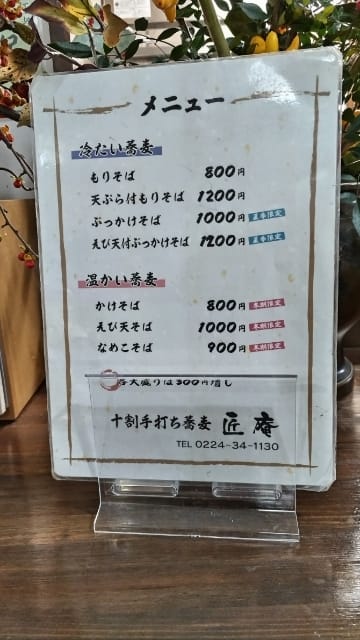 メニュー
冷たい蕎麦
もりそば 800円
天ぷら付もりそば 1200円
ぶっかけそば 1000円 夏季限定
えび天付ぶっかけそば 1200円 夏季限定
温かい蕎麦
かけそば 800円 冬期限定
えび天そば 1000円 冬期限定
なめこそば 900円 冬期限定
各大盛りは300円増し
十割手打ち蕎麦 匠庵
TEL 0224-34-1130